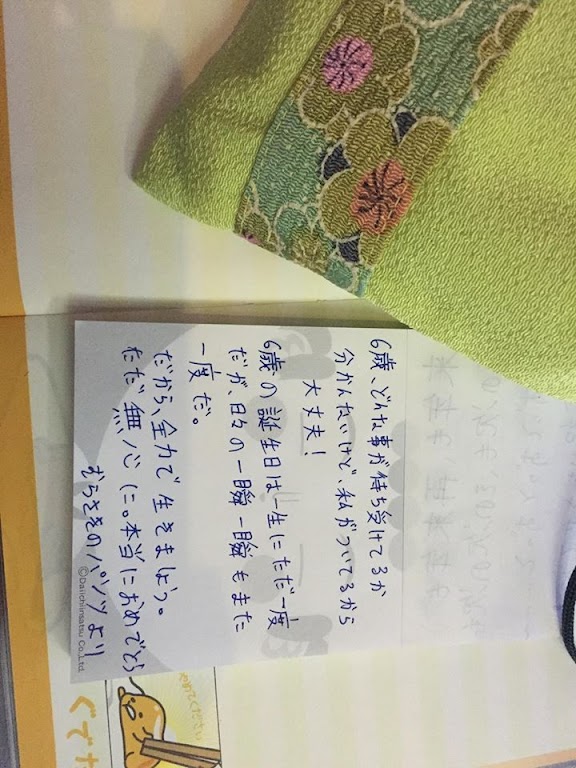 6歳、どんな事が待ち受けてるか
分かんないけど、私がついてるから
大丈夫!
6歳の誕生日は一生にただ一度
だが、日々の一瞬一瞬もまた
一度だ。
だから、全力で生きましょう。
ただ無心に。本当におめでとう
むらさきのパンツより
©Daiichiinsatsu Co.,Ltd.
ぐでた